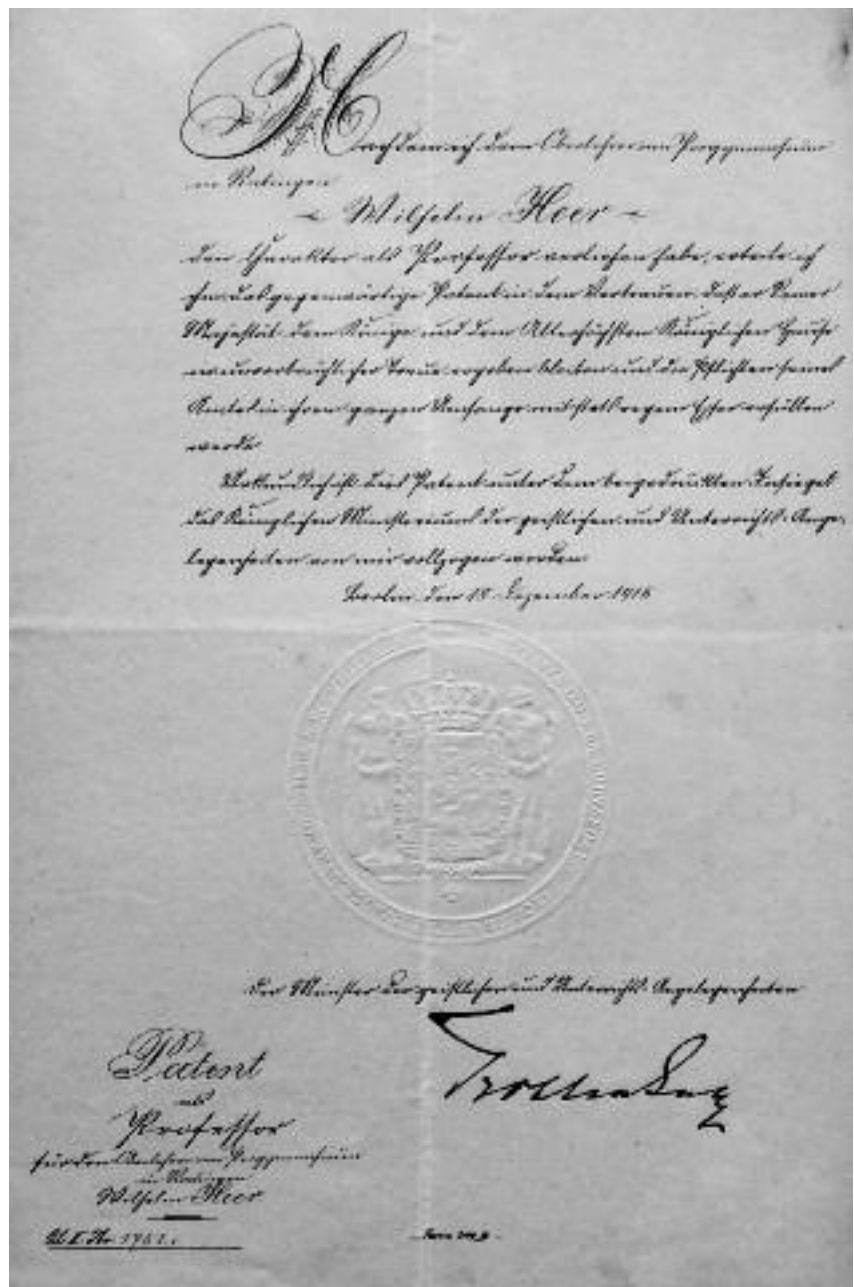 Nachdem ich dem Oberlehrer am Progymnasium
in Ratingen
Wilhelm Heer
den Charakter als Professor verliehen habe, erteile ich
ihm das gegenwärtige Patent in dem Vertrauen, daß er Seiner
Majestät dem Könige und dem Allerhöchsten Königlichen Hause
in unverbrüchlicher Treue ergeben bleiben und die Pflichten seines
Amtes in ihrem ganzen Umfange mit stets regem Eifer erfüllen
werde.
Urkundlich ist dies Patent unter dem beigedruckten Insiegel
des Königlichen Ministeriums der geistlichen und Unterrichts-Ange-
legenheiten von mir vollzogen worden.
Berlin, den 18. Dezember 1915
Der Minister der geistlichen und Unterrichts-Angelegenheiten
Patent
als
Professor
für den Oberlehrer am Progymnasium
in Ratingen
Wilhelm Heer